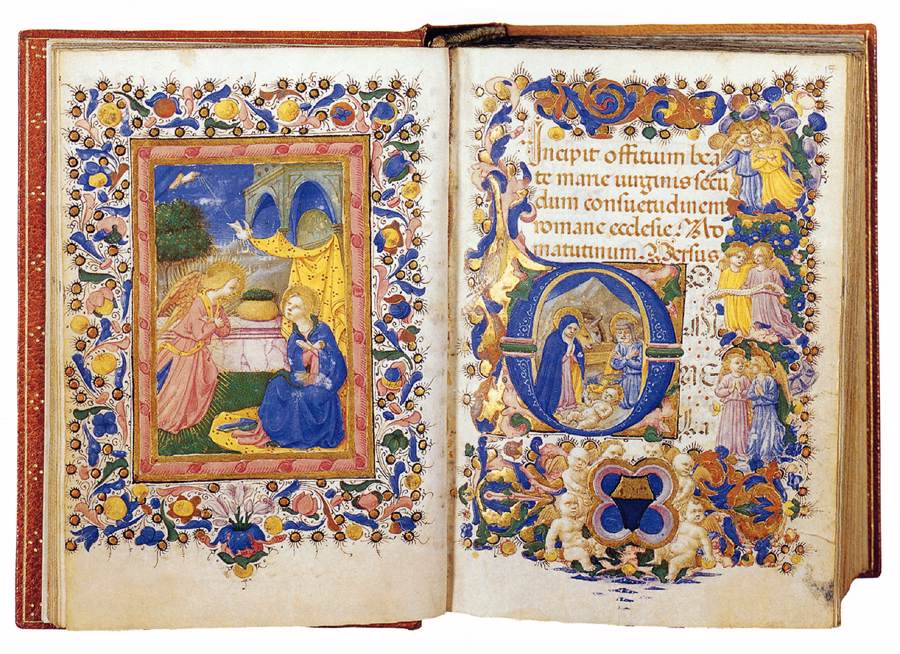 Incipit offitium bea
te marie uirginis secu
dum consuetudinem
romane ecclesie. Ad
matutinum. Versus
D